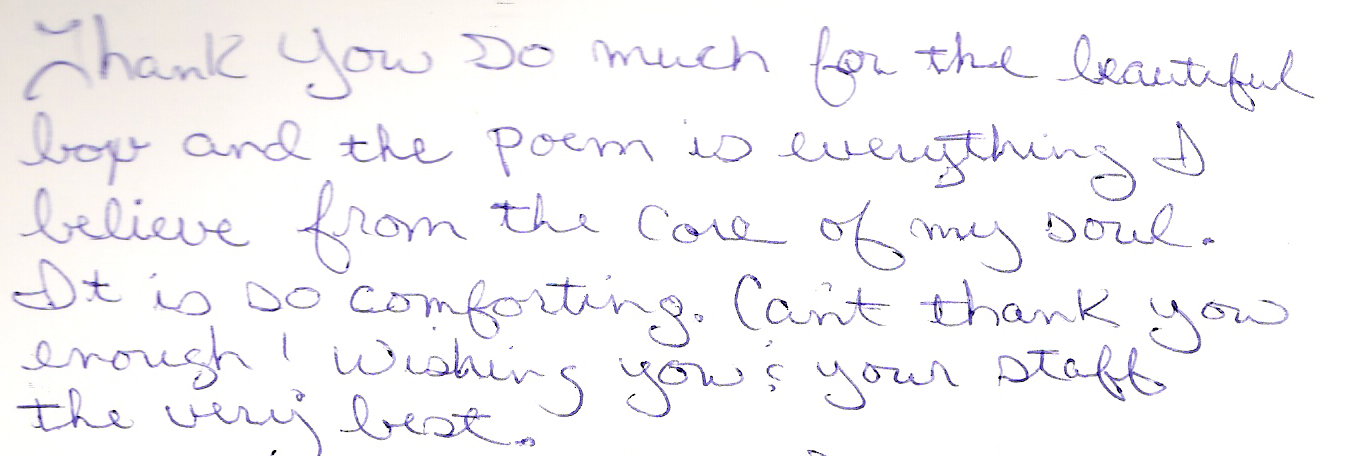 Thank you so much for the beautiful
box and the poem is everything I
believe from the core of my soul.
It is so comforting. Can't thank you
enough! Wishing you & your staff
the very best.